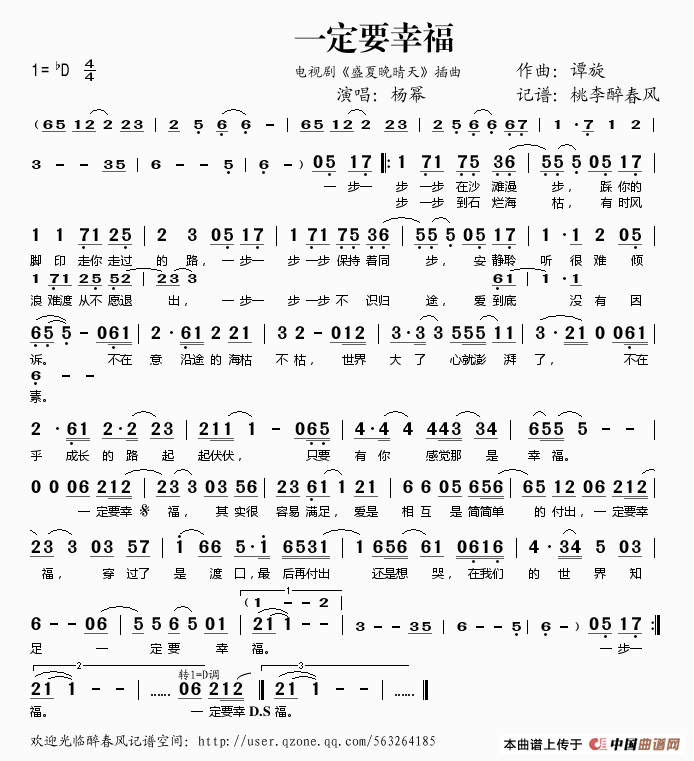 一定要幸福
1=♭D 4/4
电视剧《盛夏晚晴天》插曲 作曲：谭旋
演唱：杨幂 记谱：桃李醉春风
(65 12 2 23 | 2 5 6 6 - | 65 12 2 23 | 2·5 6 6 67 | 1·7 1 2 |
3 - - 35 | 6 - - 5 | 6 - ) 05 17 ‖: 1 71 75 36 | 55 5 05 17 |
一步一 步 一步 在沙 滩漫 步， 踩 你的
步 一步 到石 烂海 枯， 有 时风
1 1 71 25 | 2 3 05 17 | 1 71 75 36 | 55 5 05 17 | 1·1 2 05 |
脚 印 走你 走过 的 路， 一步一 步 一步 保持 着同 步， 安 静聆 听 很 难 倾
1 71 25 52 | 23 3 61 | 1·1
浪 难渡 从不 愿退 出， 一步一 步 一步 不 识归 途， 爱 到底 没 有 因
65 5 - 061 | 2·61 2 21 | 3 2 - 012 | 3·3 3 555 11 | 3·21 0 061 |
诉。 不在 意 沿途 的 海枯 不 枯， 世界 大 了 心就澎 湃 了， 不在
6 - -
素。
2·61 2·2 23 | 211 1 - 065 | 4·4 4 443 34 | 655 5 - - |
乎 成长 的 路 起 起伏伏， 只要 有 你 感觉那 是 幸 福。
0 0 06 212 | 23 3 03 56 | 23 61 1 21 | 6 6 05 656 | 65 12 06 212 |
一定要幸 𝄋 福， 其 实很 容易 满足， 爱是 相 互 是 简简单 的 付出， 一定要幸
23 3 03 57 | 1 6 5·1 6531 | 1656 61 0616 | 4·34 5 03 |
福， 穿 过了 是 渡 口，最 后再付出 还是想 哭， 在我们 的 世 界 知
1
(1 - - 2
6 - - 06 | 5 5 65 01 | 21 1 - - | 3 - - 35 | 6 - - 5 | 6 - ) 05 17 :‖
足 一 定 要 幸 福。 一步一
2 转1=D调 3
21 1 - - | …… 06 212 ‖ 21 1 - - | …… ‖
福。 一 定要幸 D.S 福。
欢迎光临醉春风记谱空间：http://user.qzone.qq.com/563264185
本曲谱上传于 中国曲谱网